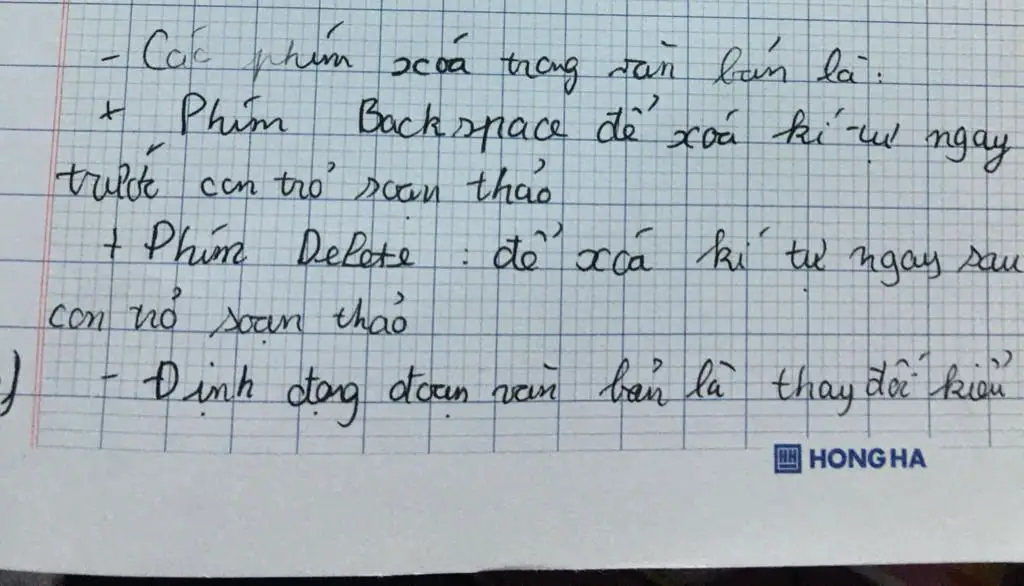 - Các phím xoá trong văn bản là:
+ Phím Backspace để xoá kí tự ngay
trước con trỏ soạn thảo
+ Phím Delete : để xoá kí tự ngay sau
con trỏ soạn thảo
) - Định dạng đoạn văn bản là thay đổi kiểu
HH HONG HA